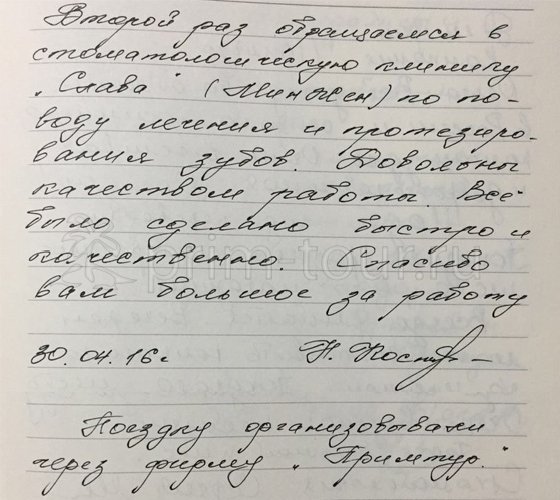 Второй раз обращаемся в
стоматологическую клинику
„Слава" (Минжен) по по-
воду лечения и протезиро-
вания зубов. Довольны
качеством работы. Всё
было сделано быстро и
качественно. Спасибо
вам большое за работу
30.04.16 г Н.
Поездку организовывали
через фирму „Примтур."
prim-tour.ru